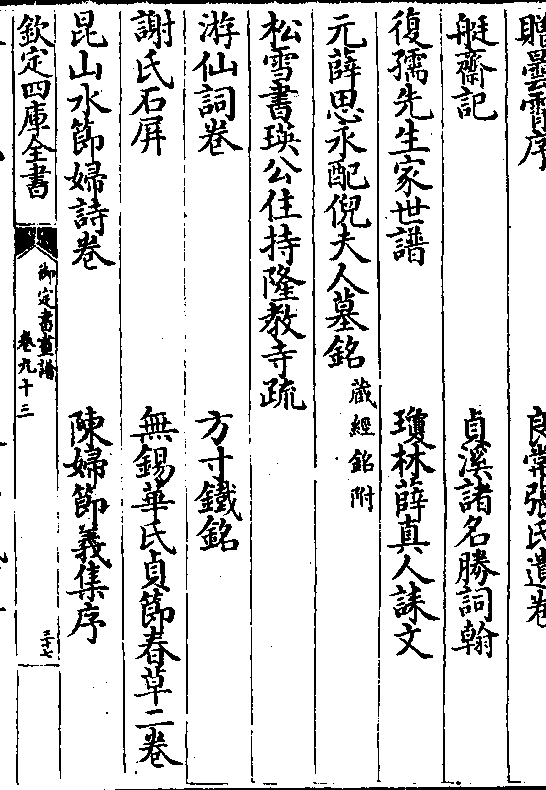 贈曇霄序　良常張氏遺卷
艇齋記　貞溪諸名勝詞翰
復孺先生家世譜　瓊林薛真人誄文
元薛思永配倪夫人墓銘 藏經銘附
松雪書瑛公住持隆教寺疏
游仙詞卷　方寸鐵銘
謝氏石屏　無錫華氏貞節春草二卷
昆山水節婦詩卷　陳婦節義集序
欽定四庫全書
御定書畫譜
卷九十三
三十七